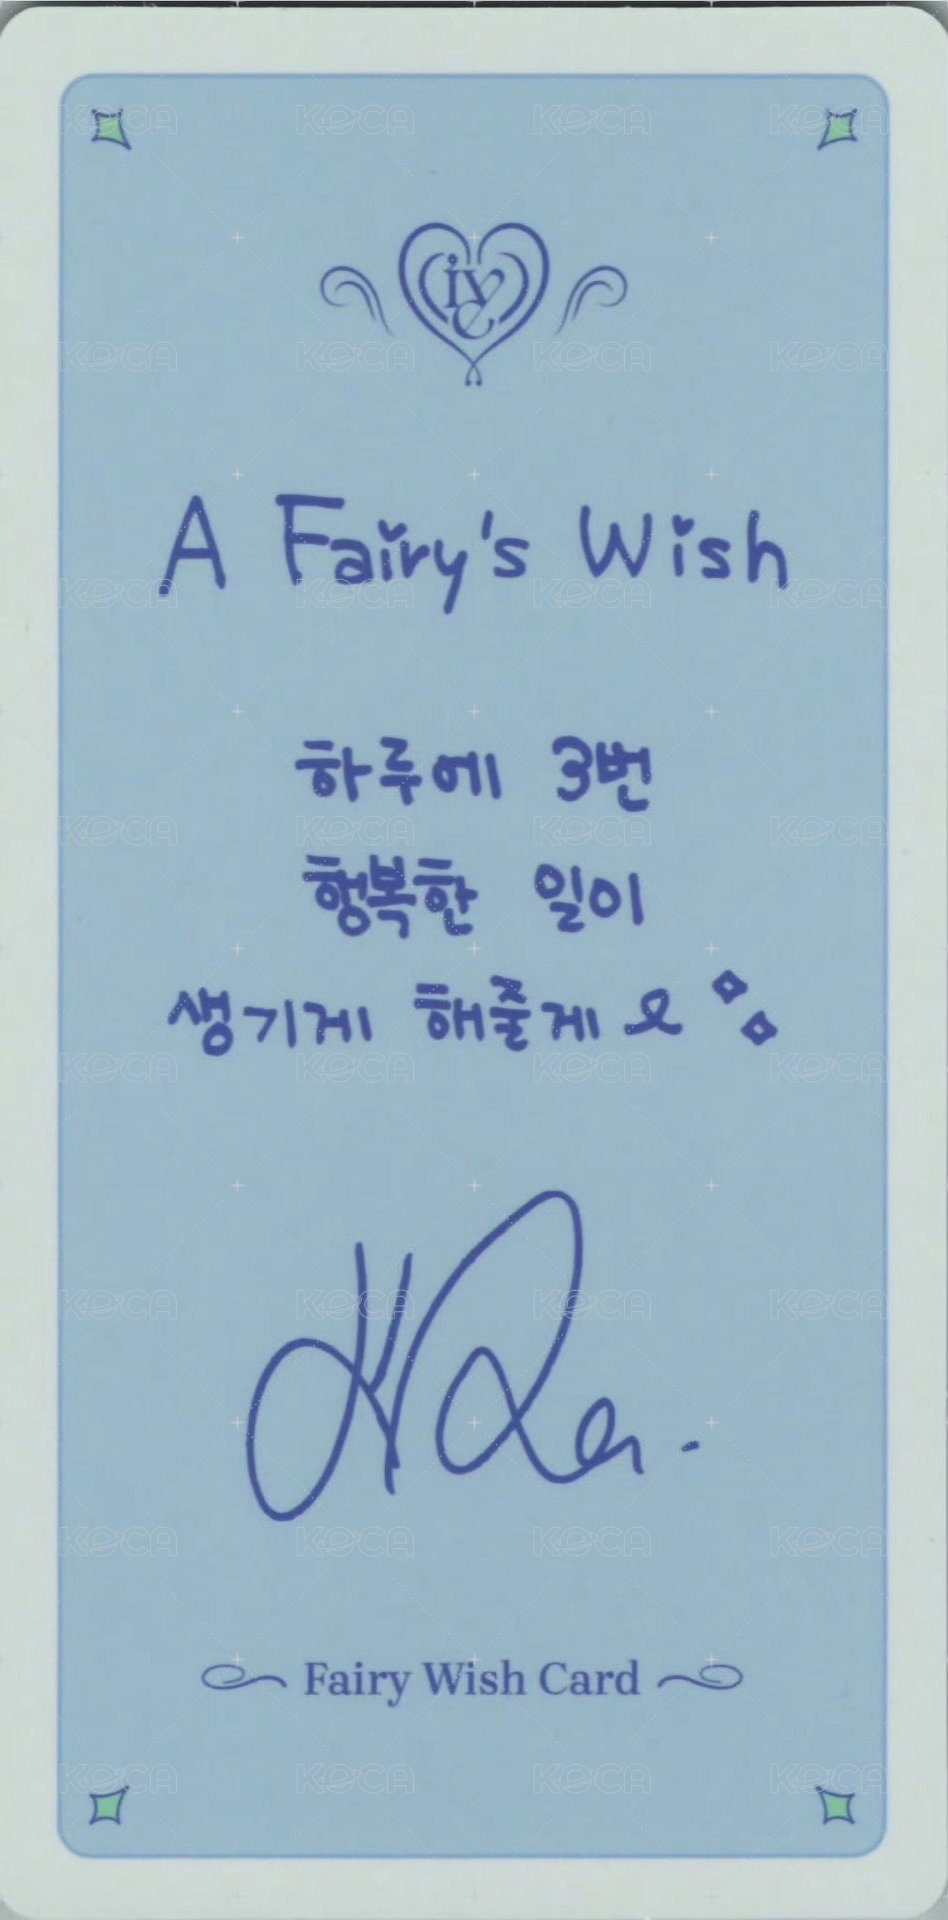 ive
A Fairy's Wish
하루에 3번
행복한 일이
생기게 해줄게
Fairy Wish Card
KOCA